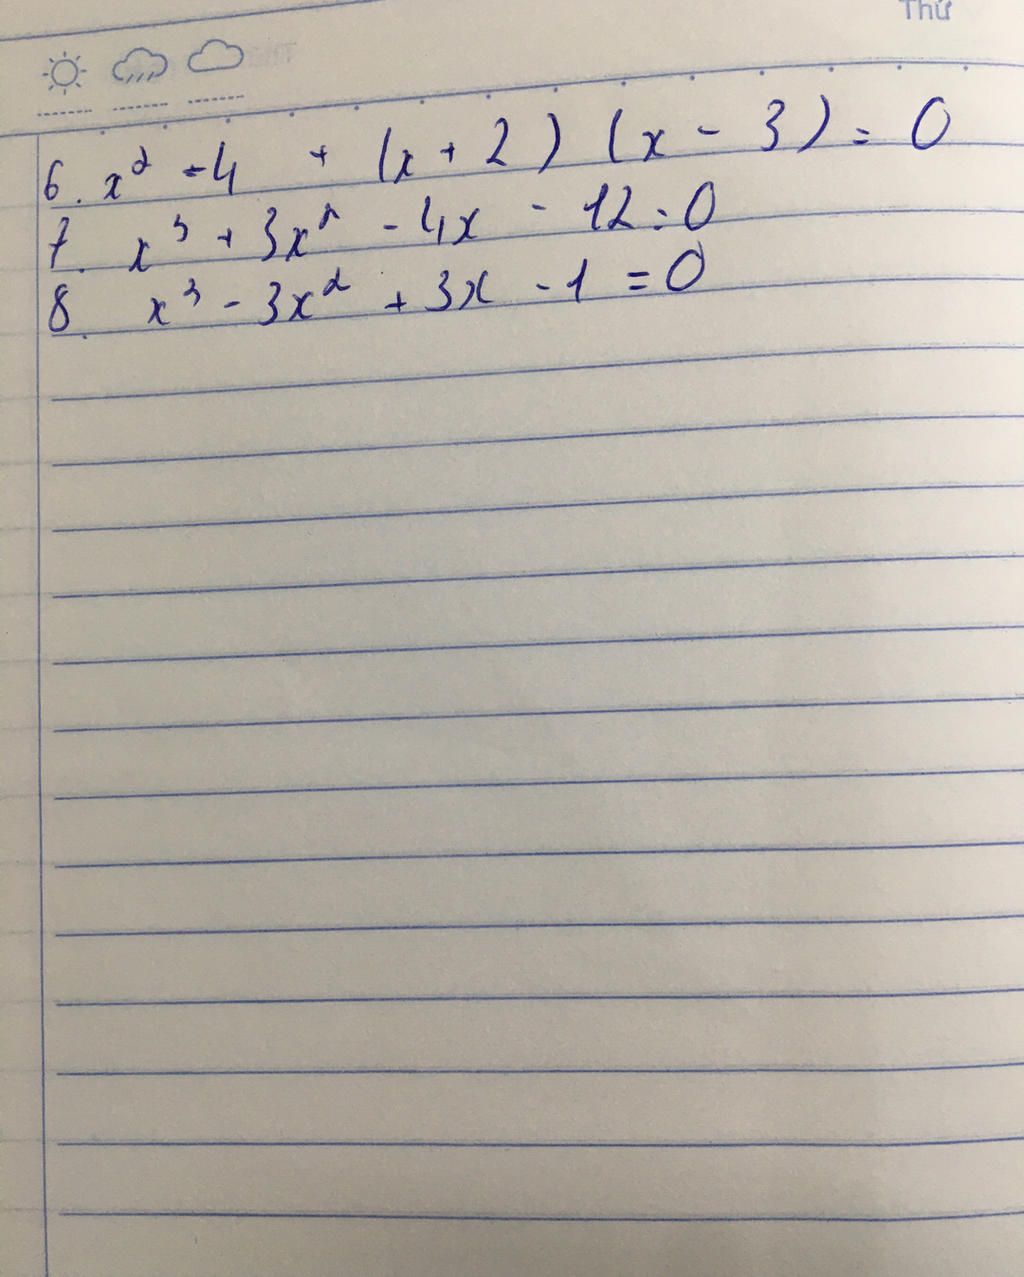 Thứ
6. x² - 4 + (x + 2) (x - 3) = 0
7. x³ + 3x² - 4x - 12 = 0
8. x³ - 3x² + 3x - 1 = 0